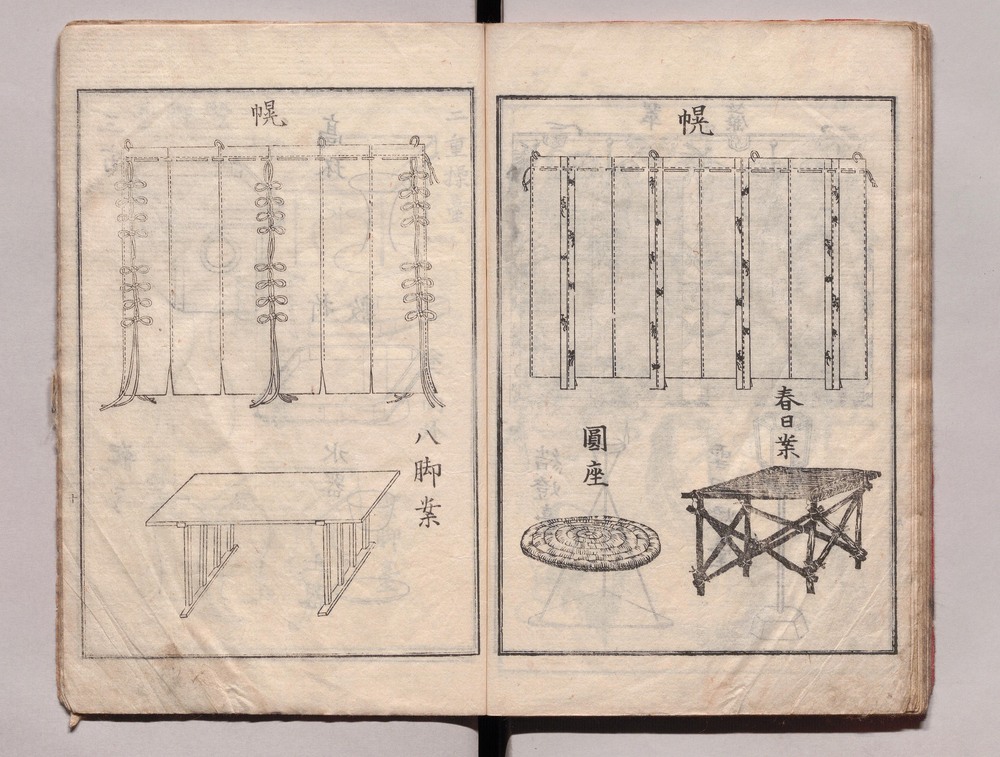 幌
春日案
圓座
幌
八脚案